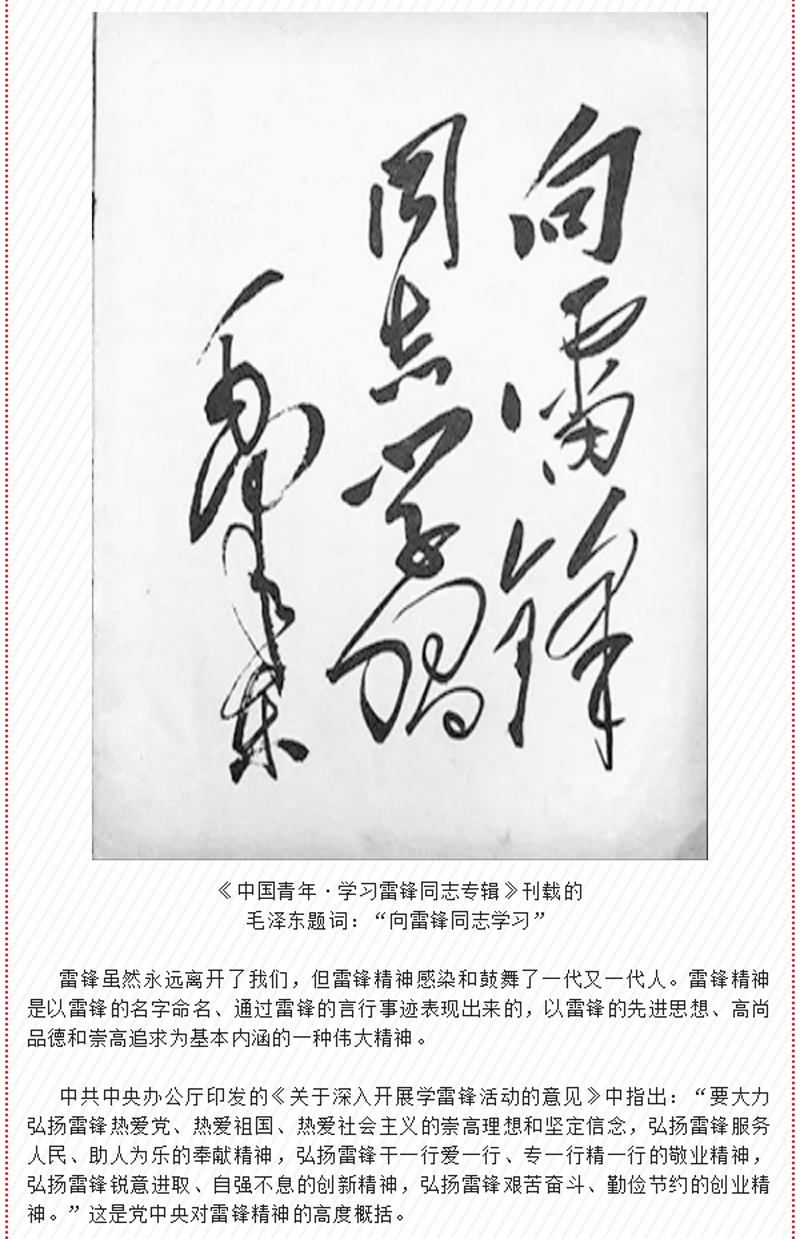 向雷锋
同志学习
毛泽东
《中国青年·学习雷锋同志专辑》刊载的
毛泽东题词：“向雷锋同志学习”
雷锋虽然永远离开了我们，但雷锋精神感染和鼓舞了一代又一代人。雷锋精神
是以雷锋的名字命名、通过雷锋的言行事迹表现出来的，以雷锋的先进思想、高尚
品德和崇高追求为基本内涵的一种伟大精神。
中共中央办公厅印发的《关于深入开展学雷锋活动的意见》中指出：“要大力
弘扬雷锋热爱党、热爱祖国、热爱社会主义的崇高理想和坚定信念，弘扬雷锋服务
人民、助人为乐的奉献精神，弘扬雷锋干一行爱一行、专一行精一行的敬业精神，
弘扬雷锋锐意进取、自强不息的创新精神，弘扬雷锋艰苦奋斗、勤俭节约的创业精
神。”这是党中央对雷锋精神的高度概括。